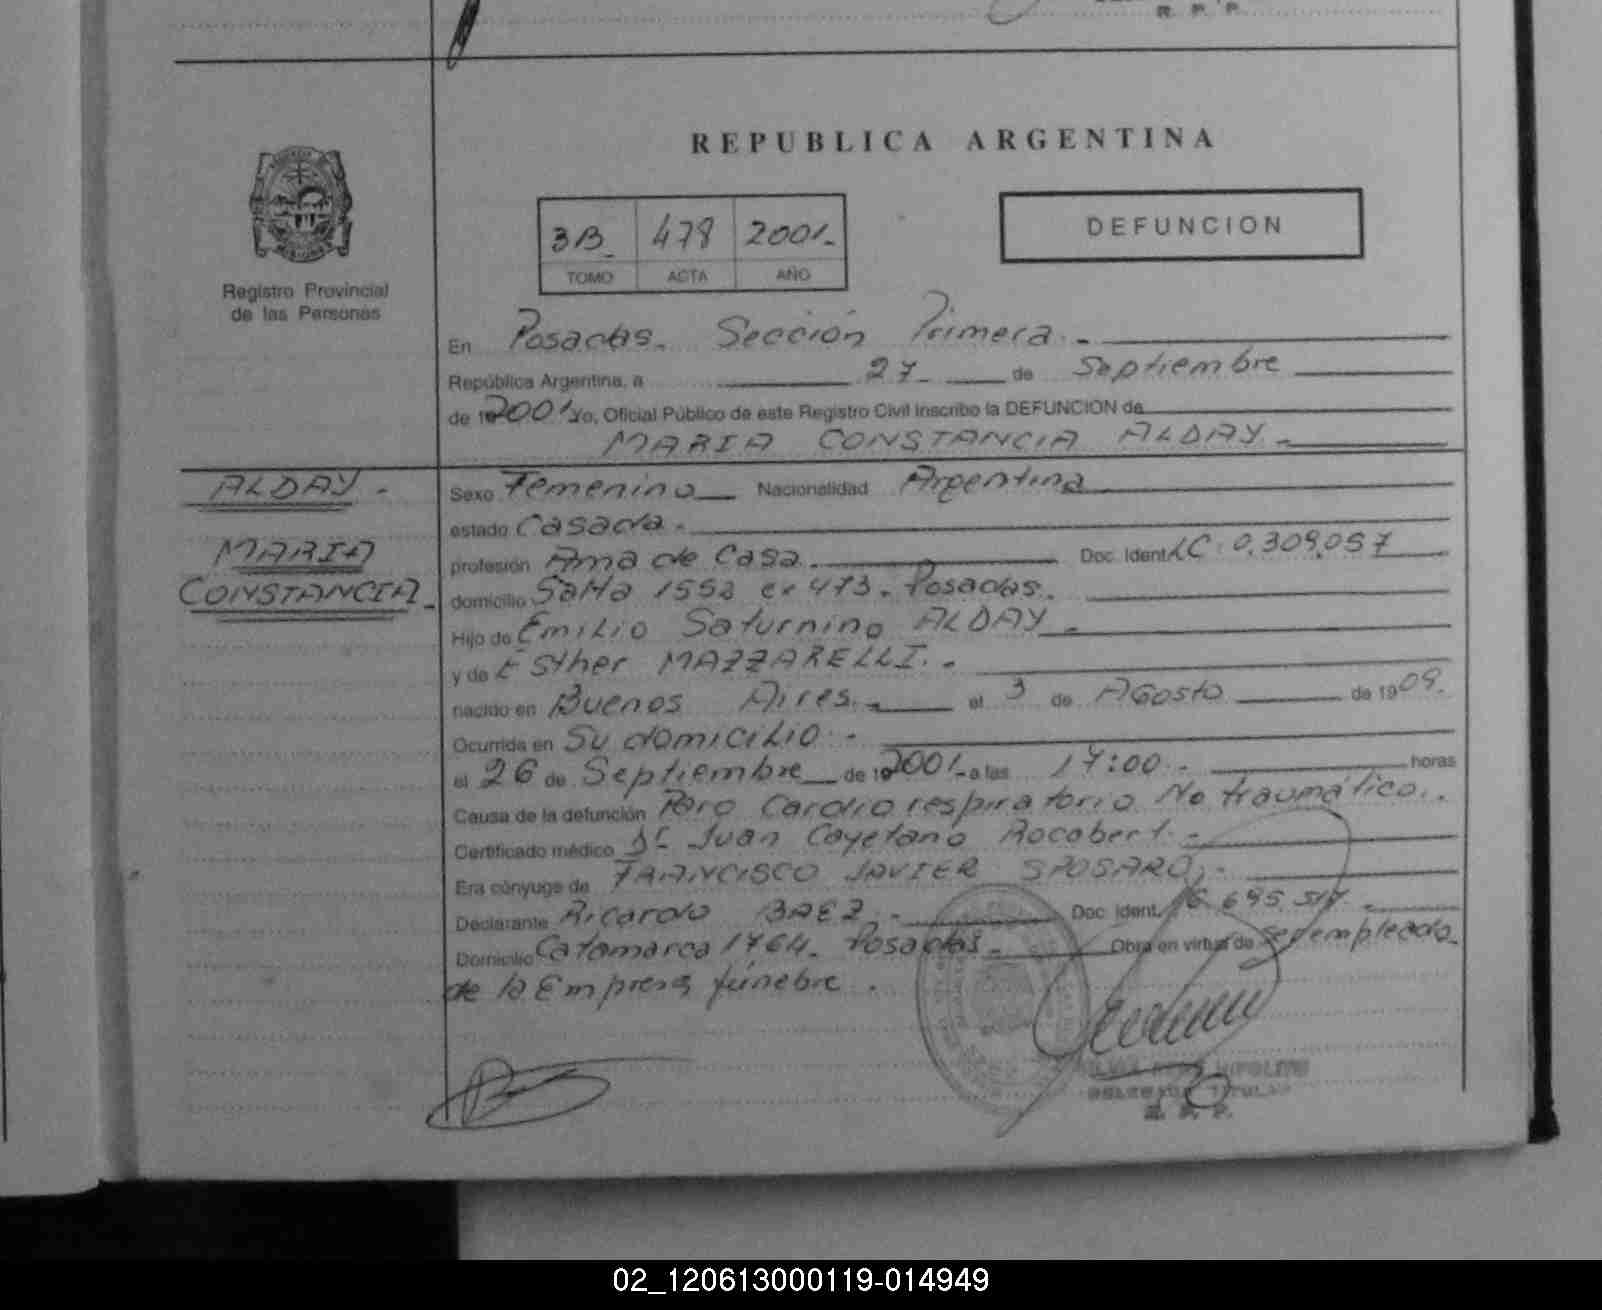 R. P. P.
REPUBLICA ARGENTINA
3B 478 2001.-
TOMO ACTA AÑO
DEFUNCION
Registro Provincial
de las Personas
En Posadas. Sección Primera.-
República Argentina, a 27- de Septiembre
de 19 2001 Yo, Oficial Público de este Registro Civil inscribo la DEFUNCION de
MARIA CONSTANCIA ALDAY.-
ALDAY.-
MARIA
CONSTANCIA.-
Sexo Femenino Nacionalidad Argentina
estado Casada.-
profesión Ama de Casa. Doc. Ident. LC. 0.309.057
domicilio Salta 1552 ex 473. Posadas.
Hijo de Emilio Saturnino ALDAY.-
y de Esther MAZZARELLI.-
nacido en Buenos Aires.- el 3 de Agosto de 1909.
Ocurrida en Su domicilio.-
el 26 de Septiembre de 19 2001- a las 17:00.- horas
Causa de la defunción Paro Cardiorespiratorio No traumático..
Certificado médico Dr Juan Cayetano Rocabert.-
Era cónyuge de FRANCISCO JAVIER SPOSARO,-
Declarante Ricardo BAEZ.- Doc. Ident. 6.695.517.-
Domicilio Catamarca 1764. Posadas.- Obra en virtud de Ser empleado
de la Empresa fúnebre.
HIPOLITO
DELEGADA TITULAR
R. P. P.
02_120613000119-014949